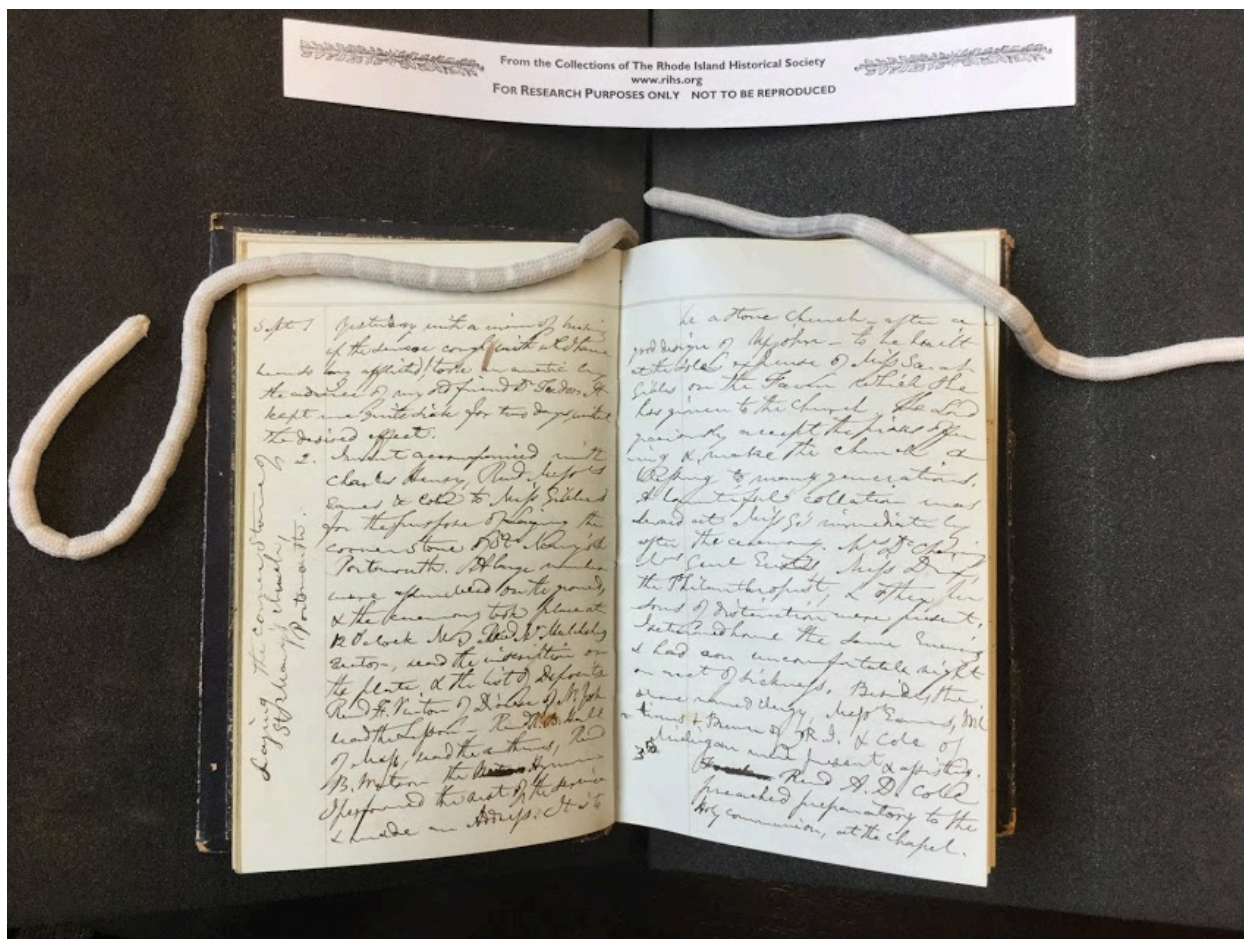 From the Collections of The Rhode Island Historical Society
www.rihs.org
FOR RESEARCH PURPOSES ONLY NOT TO BE REPRODUCED
Sept 1 Yesterday with a view of
of the severe cough with which I have
been so long afflicted, took an emetic by
the advice of my old friend Dr
kept me quite sick for two days, with
the desired effect.
2. I went accompanied with
Charles Henry, Revd Messrs
Eames & Cole to Miss Gibbs's
for the purpose of laying the
corner stone of St Mary's Ch
Portsmouth. A large number
were assembled on the ground,
& the ceremony took place at
12 O'clock M.
Rector, read the inscription on
the plate, & the list of Deposits
Revd F. Vinton of Diocese of N. York
read the Lesson – Revd Hall
of Mass, read the anthems, Revd
B. Watson the Hymn
I performed the rest of the service
& made an Address. It is to
Laying the corner stone of
St Mary's church,
Portsmouth.
be a stone Church – after a
good design of Upjohn – to be built
at the sole expense of Miss Sarah
Gibbs on the Farm which she
has given to the church. The Lord
graciously accept the pious offer
ing & make the church a
blessing to many generations.
A bountiful collation was
served at Miss G's immediately
after the ceremony. Mrs Dr Channing
Mrs Genl Miss Dix,
the Philanthropist, & other per
sons of distinction were present.
I returned home the same Evening
& had an uncomfortable night
on acct of sickness. Besides, the
above named clergy, Messrs Eames,
& Brown of R.I. & Cole of
Michigan were present & assisting.
3d Revd A. D. Cole
preached preparatory to the
Holy communion, at the chapel.